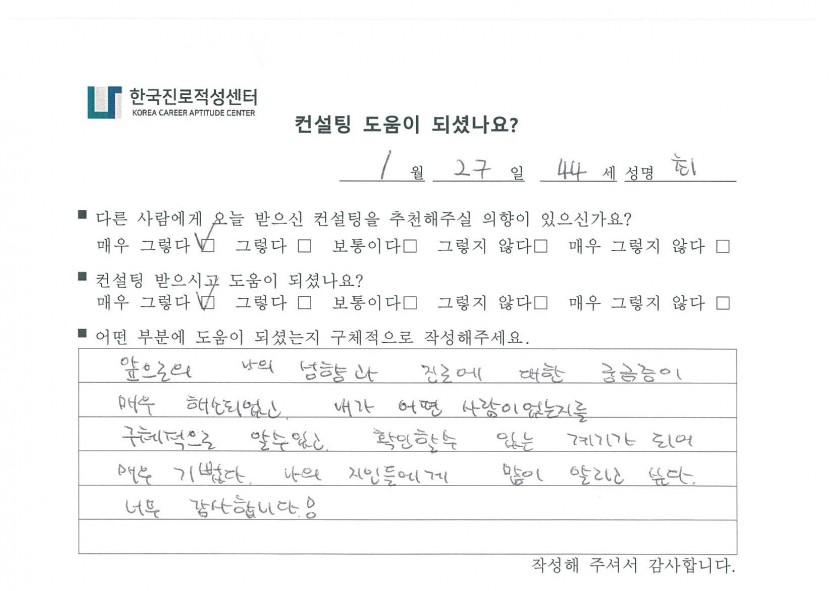 한국진로적성센터
KOREA CAREER APTITUDE CENTER
컨설팅 도움이 되셨나요?
1 월 27 일 44 세 성명 희
■ 다른 사람에게 오늘 받으신 컨설팅을 추천해주실 의향이 있으신가요?
매우 그렇다 ☑ 그렇다 □ 보통이다□ 그렇지 않다□ 매우 그렇지 않다 □
■ 컨설팅 받으시고 도움이 되셨나요?
매우 그렇다 ☑ 그렇다 □ 보통이다□ 그렇지 않다□ 매우 그렇지 않다 □
■ 어떤 부분에 도움이 되셨는지 구체적으로 작성해주세요.
앞으로의 나의 성향과 진로에 대한 궁금증이
매우 해소되었고, 내가 어떤 사람이었는지를
구체적으로 알수있고, 확인할수 있는 계기가 되어
매우 기뻤다. 나의 지인들에게 많이 알리고 싶다.
너무 감사합니다.
작성해 주셔서 감사합니다.